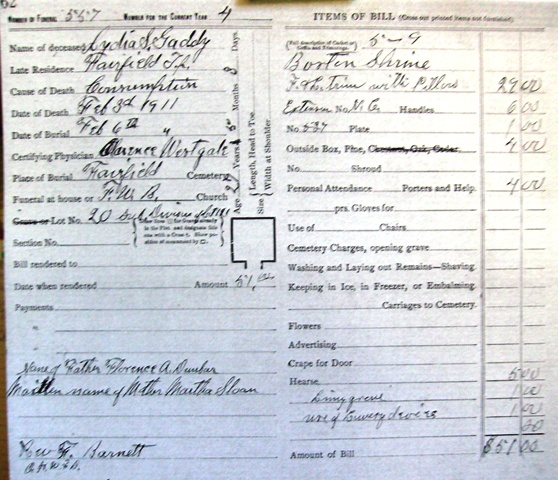 62
NUMBER OF FUNERAL 557 NUMBER FOR THE CURRENT YEAR 4
Name of deceased Lydia S. Gaddy
Late Residence Fairfield Ill.
Cause of Death Consumption
Date of Death Feb 3rd 1911
Date of Burial Feb 6th "
Certifying Physician Clarence Westgate
Place of Burial Fairfield Cemetery
Funeral at house or F. W. B. Church
Grave or Lot No. 20
Section No.
Bill rendered to
Date when rendered Amount 51.00
Payments
"
Name of Father Florence A. Dunbar
Maiden name of Mother Martha Sloan
Rev F. Barnett
Age Years Months Days.
Size Length, Head to Toe. Width at Shoulder
ITEMS OF BILL (Cross out printed items not furnished)
(Full description of Casket or Coffin and Trimmings. 5-9
Boston Shrine
with Pillow 29 00
Extension No. Handles 6 00
No. 537 Plate 1 00
Outside Box, Pine, Chestnut, Oak, Cedar. 4 00
No. Shroud
Personal Attendance Porters and Help. 4 00
prs. Gloves for
Use of Chairs
Cemetery Charges, opening grave
Washing and Laying out Remains—Shaving.
Keeping in Ice, in Freezer, or Embalming.
Carriages to Cemetery.
Flowers
Advertising
Crape for Door
Hearse 5 00
Lining grave 1 00
use of lowering device 1 00
Amount of Bill $51 00